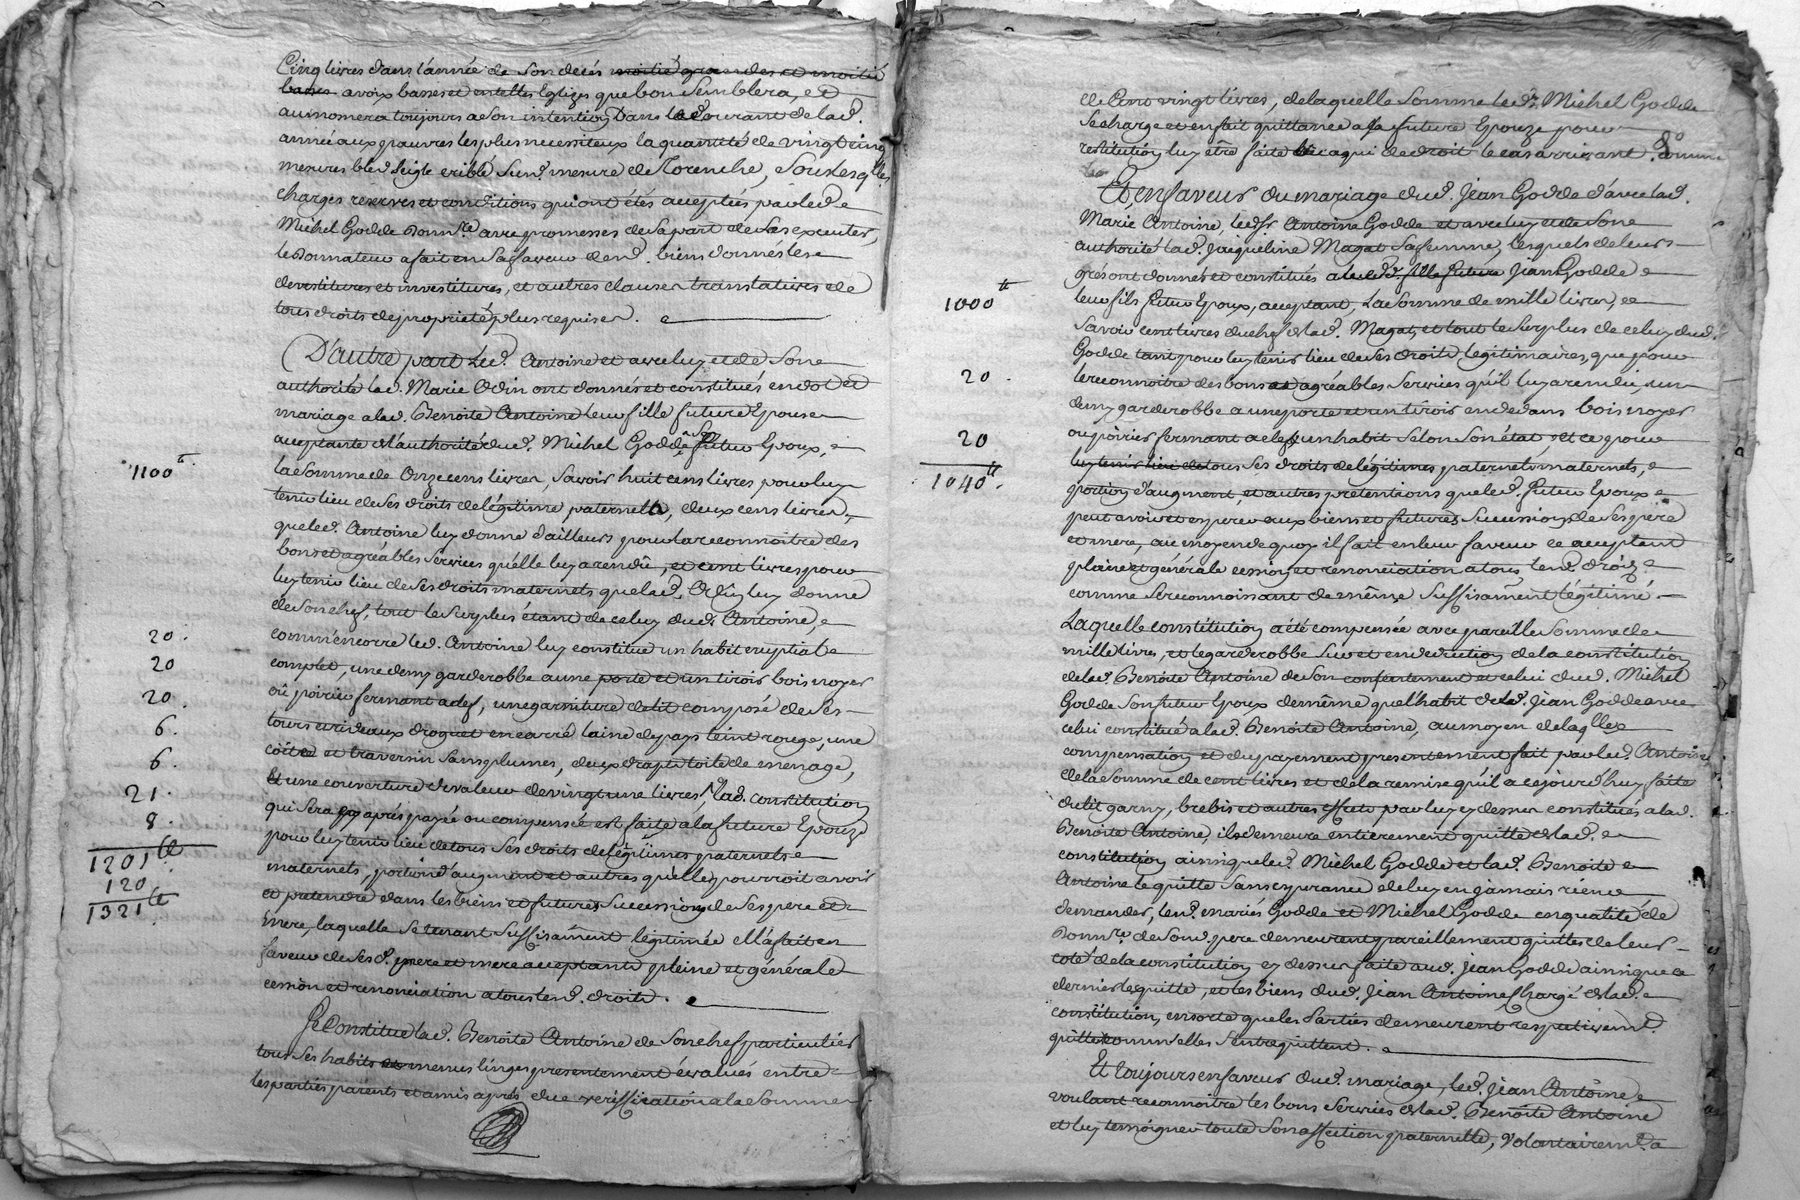 Cinq livres dans l'année de son decés moitié grandes et moitié
basses a voix basses et en telles Eglizes que bon semblera, et
aumonera toujours a son intention Dans le Courant de lad.
année aux pauvres les plus necessiteux la quantité de vingt cinq
mesures bled seigle criblé sud. mesure de Torenche, Sous lesq.lles
charges reserves et conditions qui ont étés acceptées par led.
Michel Godde Donn.re avec promesses de sa part de les executer,
le Donnateur a fait en sa faveur desd. biens donnés les
devestitures et investitures, et autres clauses translatives de
tous droits de proprieté plus requises.
D'autre part Led. Antoine et avec luy et de Son
authorité lad. Marie Odin ont donnés et constitués en dot et
mariage a lad. Benoite Antoine leur fille future Epouse
acceptante de l'authorité dud. Michel Godde son futur Epoux,
1100 tt
la somme de Onze cens livres, Savoir huit cens livres pour luy
tenir lieu de ses droits de légitime paternels, deux cens livres,
que led. Antoine luy donne d'ailleurs pour la reconnoitre des
bons et agréables services qu'elle luy a rendû, et cent livres pour
luy tenir lieu de ses droits maternels que lad. Odin luy donne
de son chef, tout le surplus étant de celuy dud. Antoine,
20.
comm'encorre led. Antoine luy constitue un habit nuptiale
20
complet, une demy garderobbe a une porte et un tiroir bois noyer
20.
oû poirier fermant a clef, une garniture de lit composé de ses
6.
tours et rideaux droguet en carré laine de pays teint rouge, une
6.
coitre et traversin sans plumes, deux draps toile de menage,
21.
Et une couverture de valeur de vingt une livres, Lad. constitution
8.
qui sera cy après payée ou compensée est faite a la future Epouze
1201 tt
pour luy tenir lieu de tous ses droits de légitimes paternels
120
maternels, portion d'augment et autres qu'elle pourroit avoir
1321 tt
et pretendre dans les biens et futures successions de ses pere et
mere, laquelle se tenant suffisament légitimée Ell'a fait en
faveur de sesd. pere et mere acceptants pleine et générale
cession et renonciation a tous lesd. droits.
Se Constitue lad. Benoite Antoine de son chef particulier
tous ses habits et menus linges presentement évalués entre
les parties parents et amis après due vérification a la somme
de Cent vingt livres, de laquelle somme led. Michel Godde
se charge et en fait quittance a sa future Epouze pour
restitution luy être faite ou a qui de droit le cas arrivant.
Et en faveur du mariage dud. Jean Godde d'avec lad.
Marie Antoine, led. Sr Antoine Godde et avec luy et de Son
authorité lad. Jacqueline Magat sa femme, lesquels de leurs
grés ont donnés et constitués aud. Jean Godde
1000 tt
leur fils futur Epoux, acceptant, La somme de mille livres,
Savoir cent livres du chef de lad. Magat, et tout le surplus de celuy dud.
Godde tant pour luy tenir lieu de ses droits légitimaires, que pour
20.
le reconnoitre des bons et agréables services qu'il luy a rendu, un
demy garderobbe a une porte et un tiroir en dedans bois noyer
20
ou poirier fermant a clef, un habit selon son état, et ce pour
luy tenir lieu de tous ses droits de légitimes paternels maternels,
1040 tt.
portion d'augment, et autres prétentions que led. futur Epoux
peut avoir et esperer aux biens et futures successions de ses pére
et mere, au moyen de quoy il fait en leur faveur ce acceptant
plaine et générale cession et renonciation a tous lesd. droits
comme se reconnoissant de même suffisament légitimé.
Laquelle constitution a été compensée avec pareille somme de
mille livres, et le garderobbe sur et en deduction de la constitution
de lad. Benoite Antoine de son consentement et celui dud. Michel
Godde son futur Epoux de même que l'habit dud. Jean Godde avec
celui constitué a lad. Benoite Antoine, au moyen de laq.lle
compensation et du payement presentement fait par led. Antoine
de la somme de cent livres et de la remise qu'il a cejourd'huy faite
du lit garny, brebis et autres effets par luy cy dessus constitués a lad.
Benoite Antoine, il demeure entierement quitte de lad.
constitution ainsi que led. Michel Godde et lad. Benoite
Antoine le quitte sans esperance de luy en jamais rien
demander, lesd. mariés Godde et Michel Godde en qualité de
Donn.re de sond. pere demeurent pareillement quittes de leur
coté de la constitution cy dessus faite aud. Jean Godde ainsi que ce
dernier les quitte, et les biens dud. Jean Antoine chargé de lad.
constitution, en sorte que les Parties demeurent respectivem.t
quittes comm'elles s'entrequittent.
Et toujours en faveur dud. mariage, led. Jean Antoine
voulant reconnoitre les bons services de lad. Benoite Antoine
et luy temoigner toute son affection paternelle, volontairem.t a